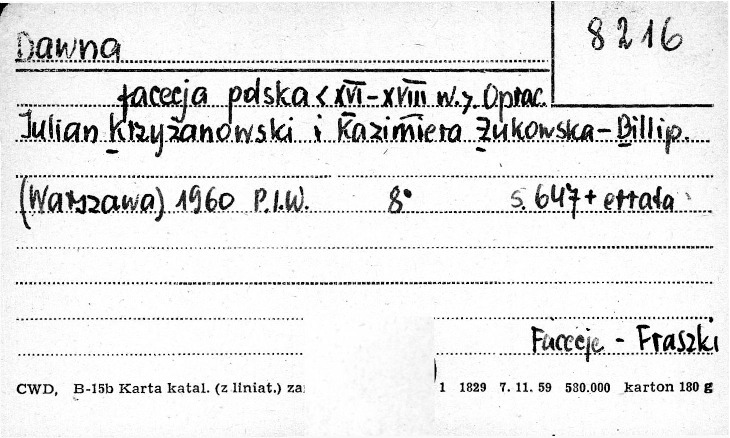 8216
Dawna
facecja polska <XVI-XVIII w.> Oprac.
Julian Krzyżanowski i Kazimiera Żukowska-Billip.
(Warszawa) 1960 P.I.W. 8° s. 647 + errata
Facecje - Fraszki
CWD, B-15b Karta katal. (z liniat.) za 1 1829 7. 11. 59 580.000 karton 180 g